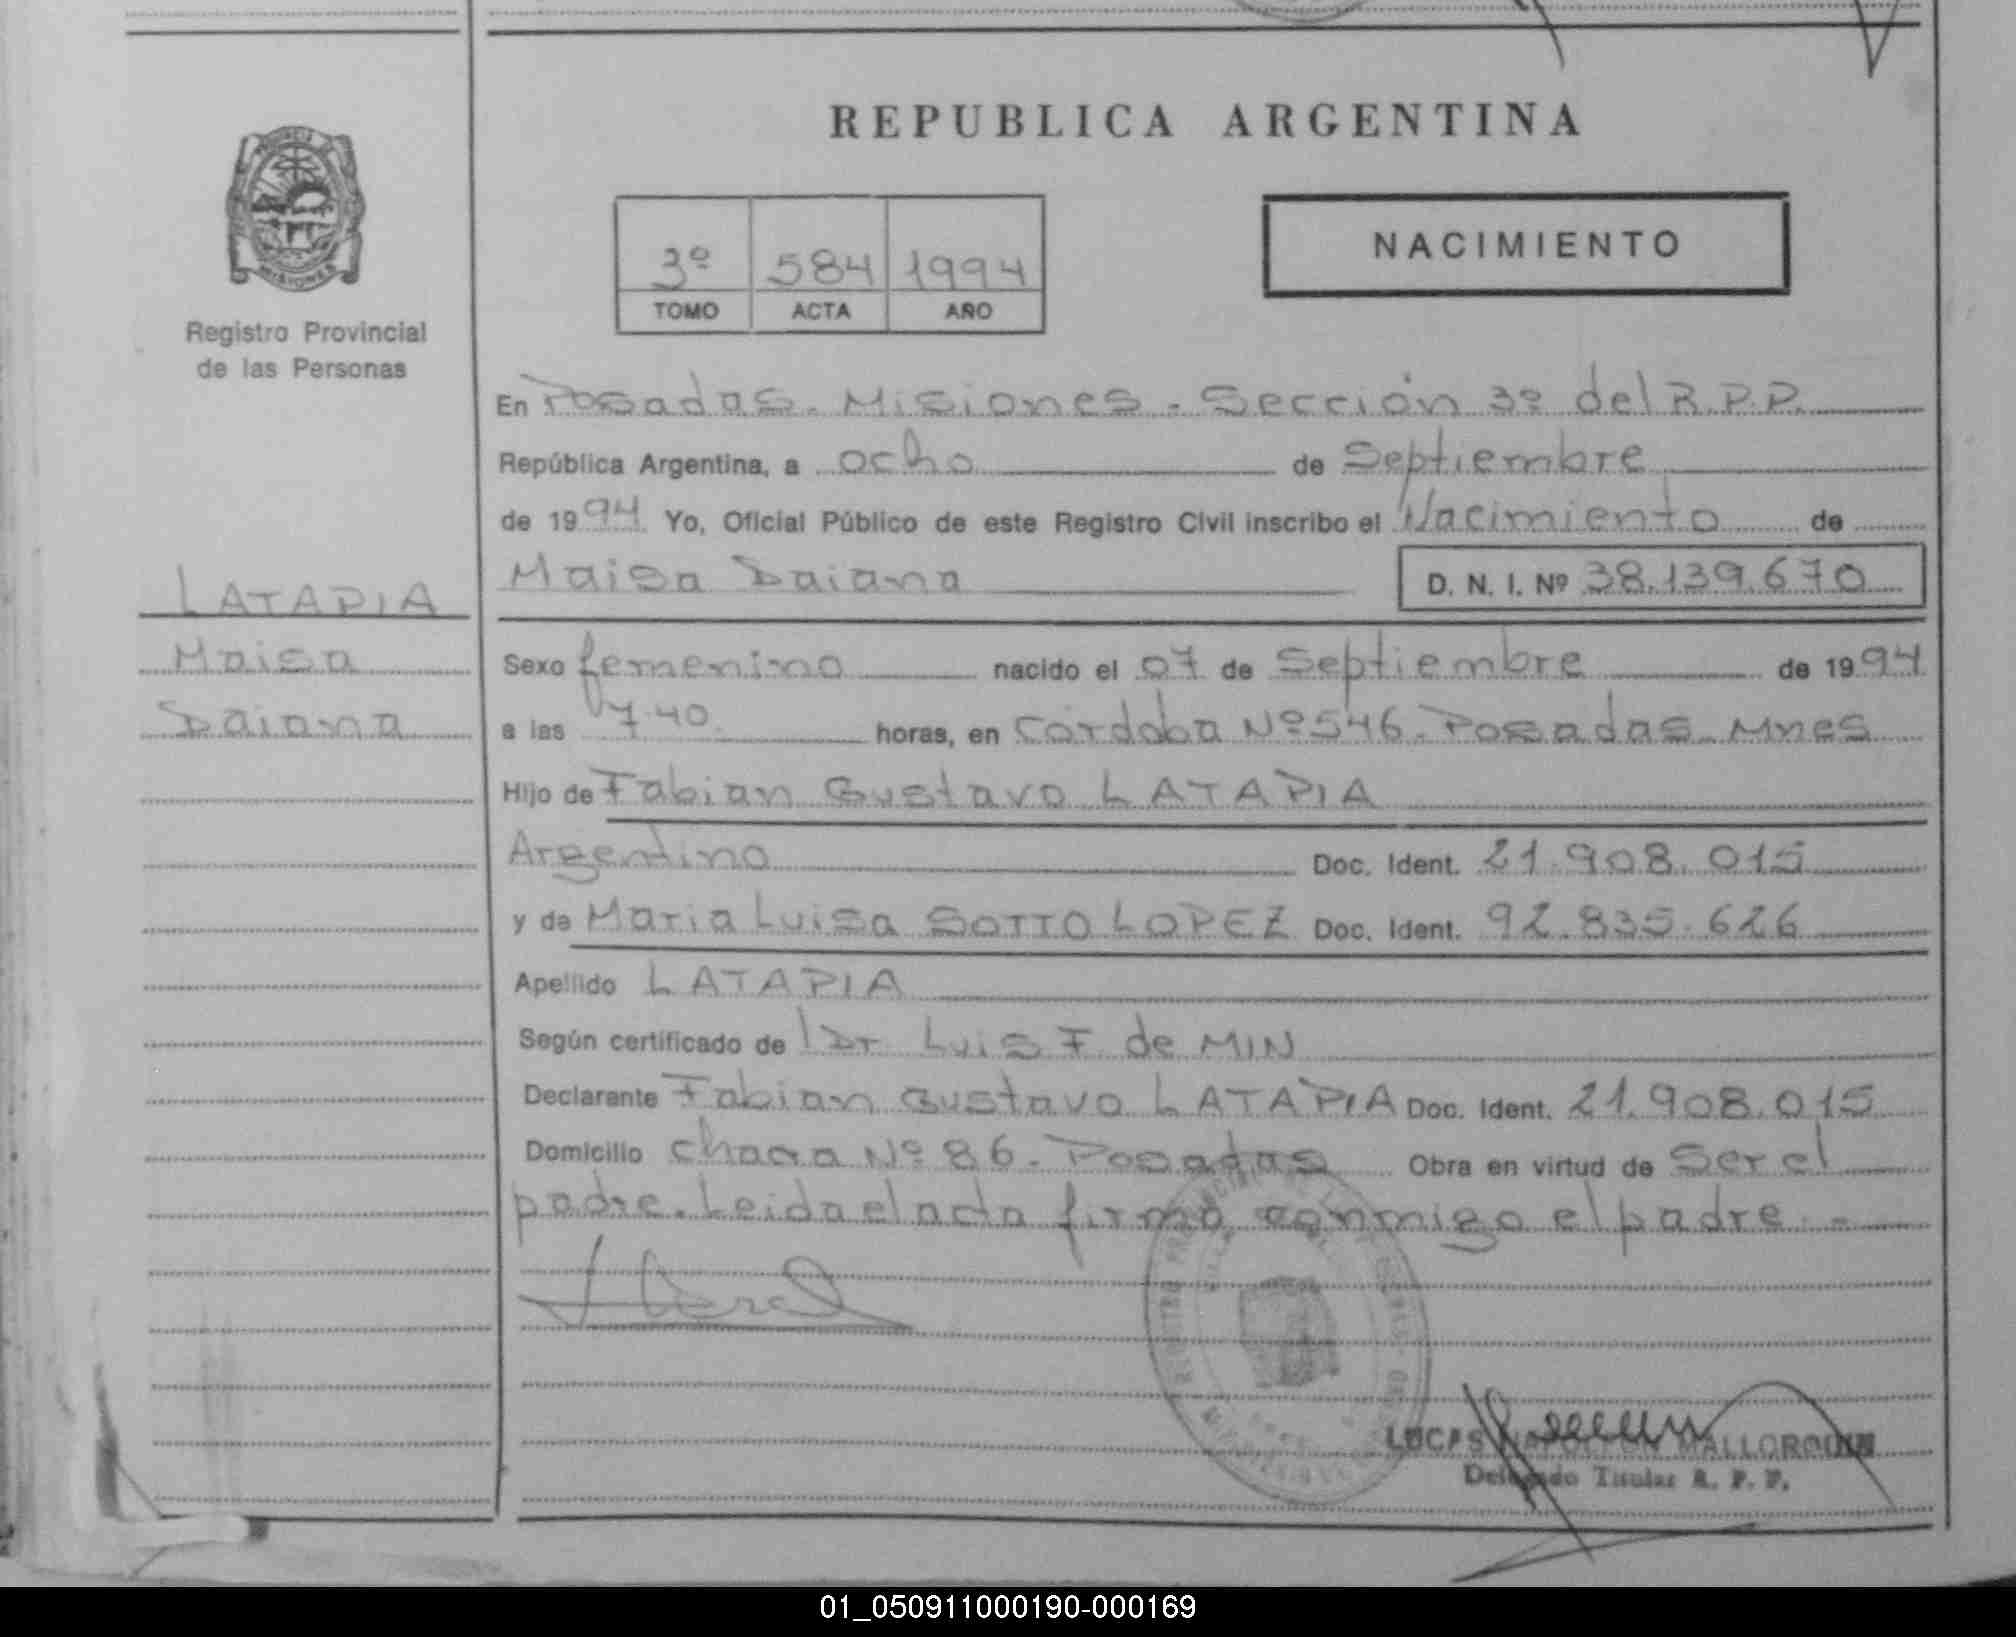 REPUBLICA ARGENTINA
NACIMIENTO
3º 584 1994
TOMO ACTA AÑO
MISIONES
Registro Provincial
de las Personas
LATAPIA
Maisa
Daiana
En Posadas. Misiones. Sección 3º del R.P.P.
República Argentina, a ocho de Septiembre
de 1994 Yo, Oficial Público de este Registro Civil inscribo el Nacimiento de
Maisa Daiana D. N. I. Nº 38.139.670
Sexo femenino nacido el 07 de Septiembre de 1994
a las 7.40 horas, en Córdoba Nº 546. Posadas. Mnes
Hijo de Fabian Gustavo LATAPIA
Argentino Doc. Ident. 21.908.015
y de Maria Luisa SOTTO LOPEZ Doc. Ident. 92.835.626
Apellido LATAPIA
Según certificado de l Dr Luis F. de MIN
Declarante Fabian Gustavo LATAPIA Doc. Ident. 21.908.015
Domicilio chacra Nº 86. Posadas Obra en virtud de Ser el
padre. Leida el acta firma conmigo el padre.-
LUCAS NAPOLEON MALLORQUIN
Delegado Titular R. P. P.
01_050911000190-000169